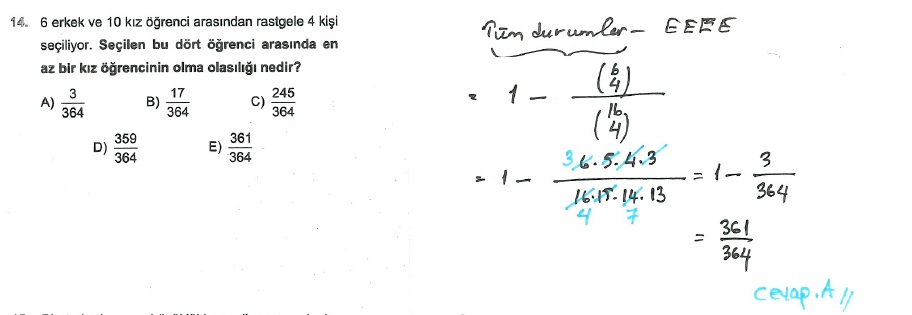 14. 6 erkek ve 10 kız öğrenci arasından rastgele 4 kişi
seçiliyor. Seçilen bu dört öğrenci arasında en
az bir kız öğrencinin olma olasılığı nedir?
A) 3/364 B) 17/364 C) 245/364
D) 359/364 E) 361/364
Tüm durumlar - EEEE
= 1 - (6 4)/(16 4)
= 1 - 6.5.4.3/16.15.14.13 = 1 - 3/364
3
4 7
= 361/364
Cevap.A //